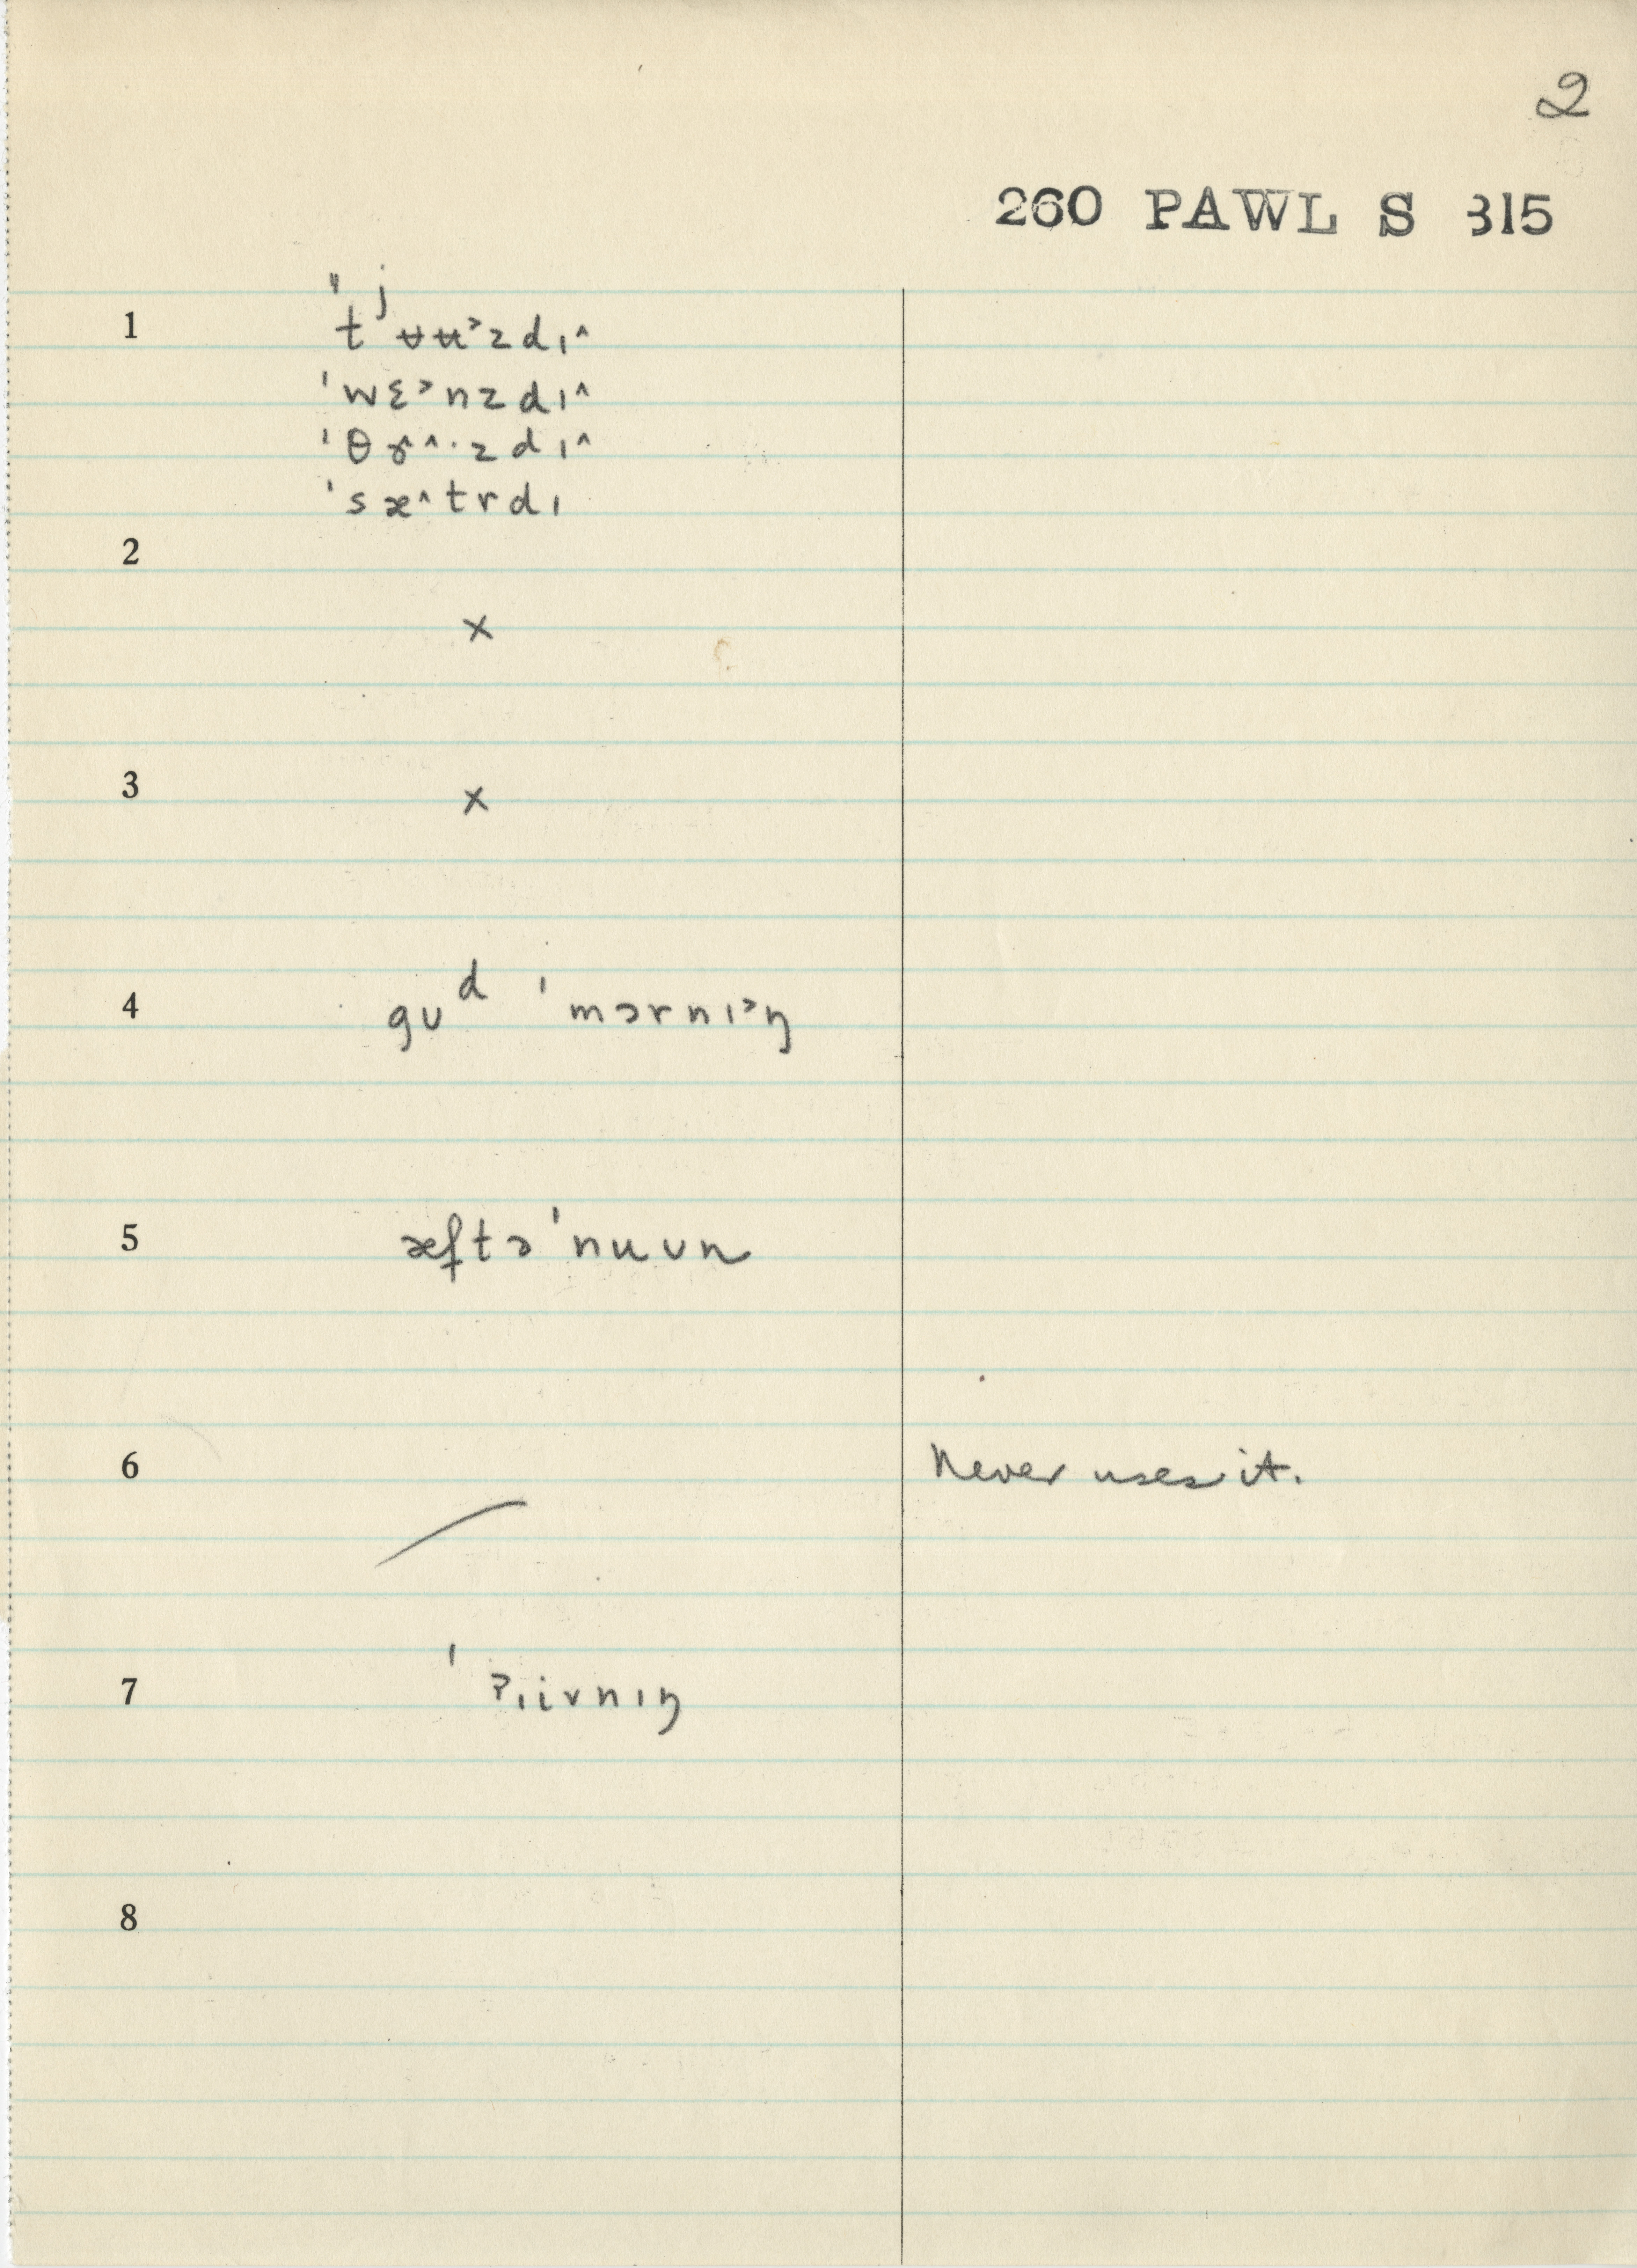 2
260 PAWL S 315
1 "tʲʉʉ˃zdɪ^
'wɛ˃nzdɪ^
'θɝ^·zdɪ^
'sæ^trdɪ
2
×
3
×
4 gʊᵈ 'mɔrnɪ˃ŋ
5 æftə'nuʊn
6 Never uses it.
7 'ʔɪivnɪŋ
8